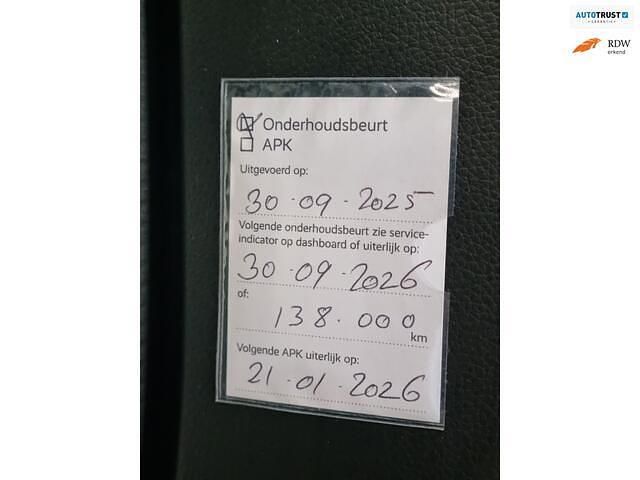 AUTOTRUST
GARANTIE
RDW
erkend
Onderhoudsbeurt
APK
Uitgevoerd op:
30 · 09 · 2025
Volgende onderhoudsbeurt zie service-
indicator op dashboard of uiterlijk op:
30 · 09 · 2026
of:
138.000
km
Volgende APK uiterlijk op:
21 · 01 · 2026